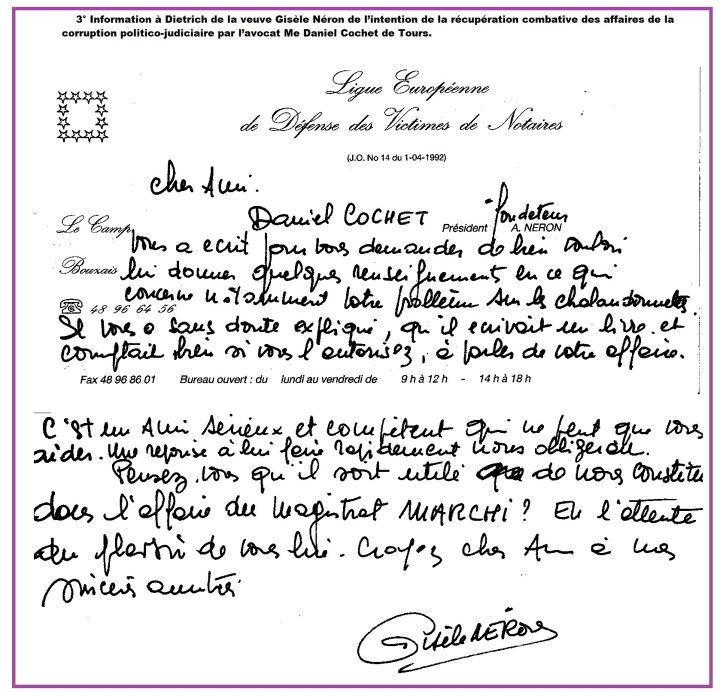 3° Information à Dietrich de la veuve Gisèle Néron de l'intention de la récupération combative des affaires de la
corruption politico-judiciaire par l'avocat Me Daniel Cochet de Tours.
Ligue Européenne
de Défense des Victimes de Notaires
(J.O. No 14 du 1-04-1992)
cher Ami.
Daniel COCHET
fondateur
Président A. NERON
Le Camp
Vous a ecrit pour vous demander de bien vouloir
Bouzais
lui donner quelques renseignements en ce qui
concerne notamment votre problème sur les
48 96 64 56
Il vous a sans doute expliqué, qu'il ecrivait un livre et
comptait bien si vous l'autorisez, à parler de votre affaire.
Fax 48 96 86 01 Bureau ouvert : du lundi au vendredi de 9 h à 12 h - 14 h à 18 h
C'est un Ami sérieux et compétent qui ne peut que vous
aider. Une reponse à lui faire rapidement nous obligerait.
Pensez vous qu'il soit utile de nous constituer
dans l'affaire du magistrat MARCHI? En l'attente
du plaisir de vous lire. Croyez cher Ami à nos
sincères amitiés
Gisèle NÉRON